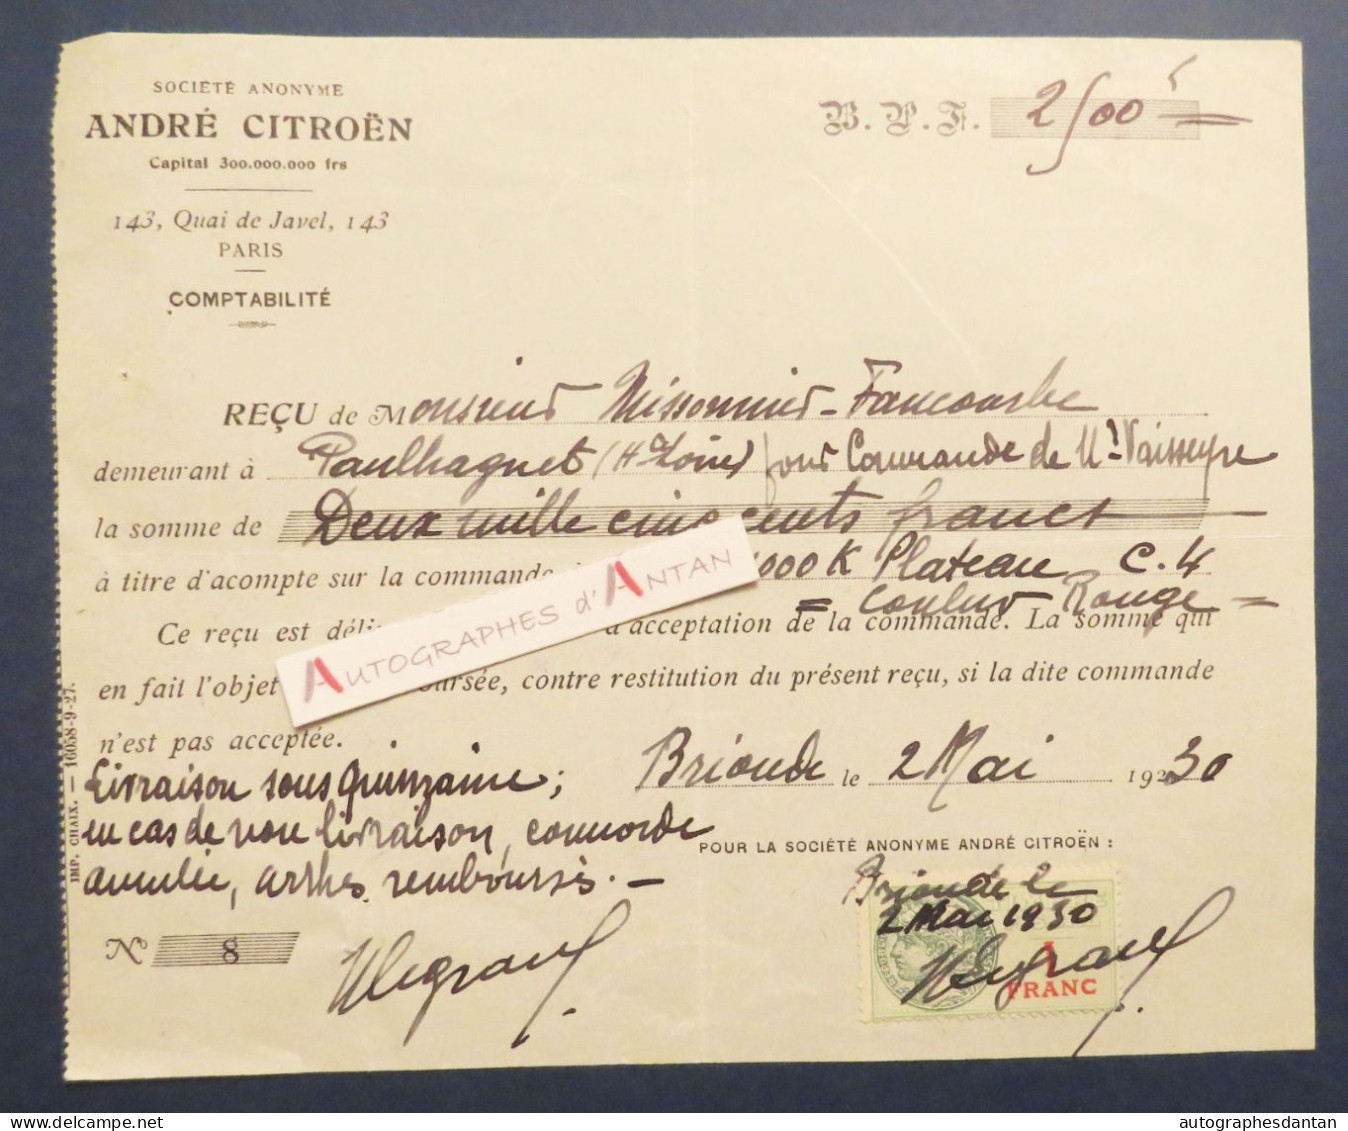 SOCIÉTÉ ANONYME
ANDRÉ CITROËN
Capital 300.000.000 frs
143, Quai de Javel, 143
PARIS
COMPTABILITÉ
B. P. F. 2500 f
REÇU de Monsieur Missonnier - Faucourbe
demeurant à Paulhaguet (Hte Loire) pour Commande de Mr Vaisseyre
la somme de Deux mille cinq cents francs
à titre d'acompte sur la commande 1000 K Plateau C.4
= Couleur Rouge =
Ce reçu est d'acceptation de la commande. La somme qui
en fait l'objet contre restitution du présent reçu, si la dite commande
n'est pas acceptée.
Brioude le 2 Mai 1930
Livraison sous quinzaine;
en cas de non livraison, commande
annulée, arrhes remboursés. —
POUR LA SOCIÉTÉ ANONYME ANDRÉ CITROËN :
Brioude le
2 Mai 1930
1
FRANC
No 8
IMP. CHAIX. — 16058-9-27.
AUTOGRAPHES d'ANTAN
autographesdantan